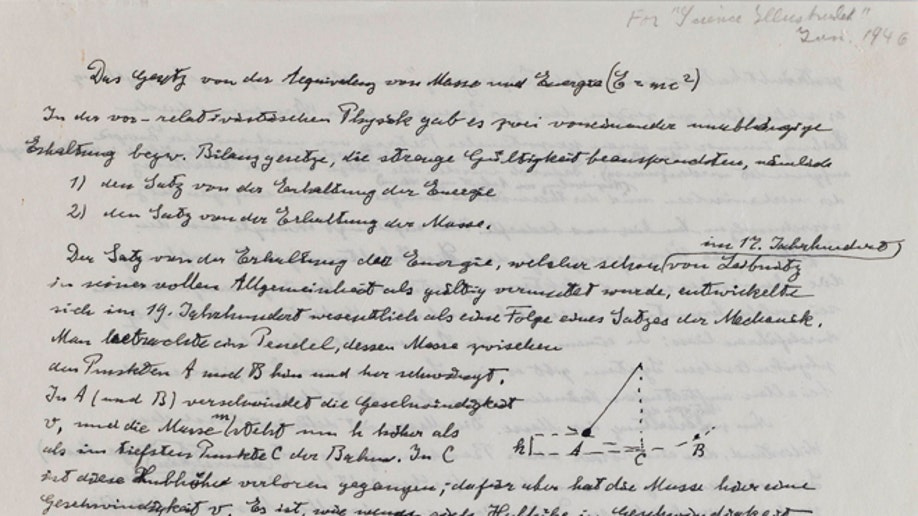 For "Science Illustrated"
Jan. 1946
Das Gesetz von der Aequivalenz von Masse und Energie (E = mc²)
In der vor-relativistischen Physik gab es zwei voneinander unabhängige
Erhaltung bezw. Bilanzgesetze, die strenge Gültigkeit beanspruchten, nämlich
1) den Satz von der Erhaltung der Energie
2) den Satz von der Erhaltung der Masse.
im 17. Jahrhundert
Der Satz von der Erhaltung der Energie, welcher schon von Leibnitz
in seiner vollen Allgemeinheit als gültig vermutet wurde, entwickelte
sich im 19. Jahrhundert wesentlich als eine Folge eines Satzes der Mechanik.
Man betrachte ein Pendel, dessen Masse zwischen
den Punkten A und B hin und her schwingt.
In A (und B) verschwindet die Geschwindigkeit
m
v, und die Masse steht um h höher als
als im tiefsten Punkte C der Bahn. In C
h A C B
ist diese Hubhöhe verloren gegangen; dafür aber hat die Masse hier eine
Geschwindigkeit v. Es ist, wie wenn sich Hubhöhe in Geschwindigkeit